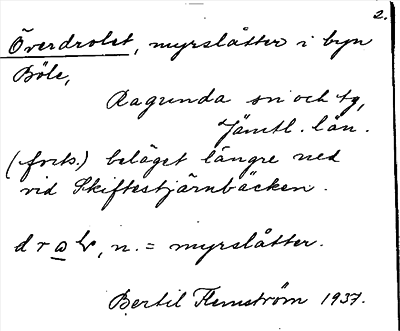 2.
Överdrolet, myrslåtter i byn
Böle,
Ragunda sn och tg,
Jämtl. län.
(forts.) beläget längre ned
vid Skiftestjärnbäcken.
n. = myrslåtter.
Bertil Flemström 1937.